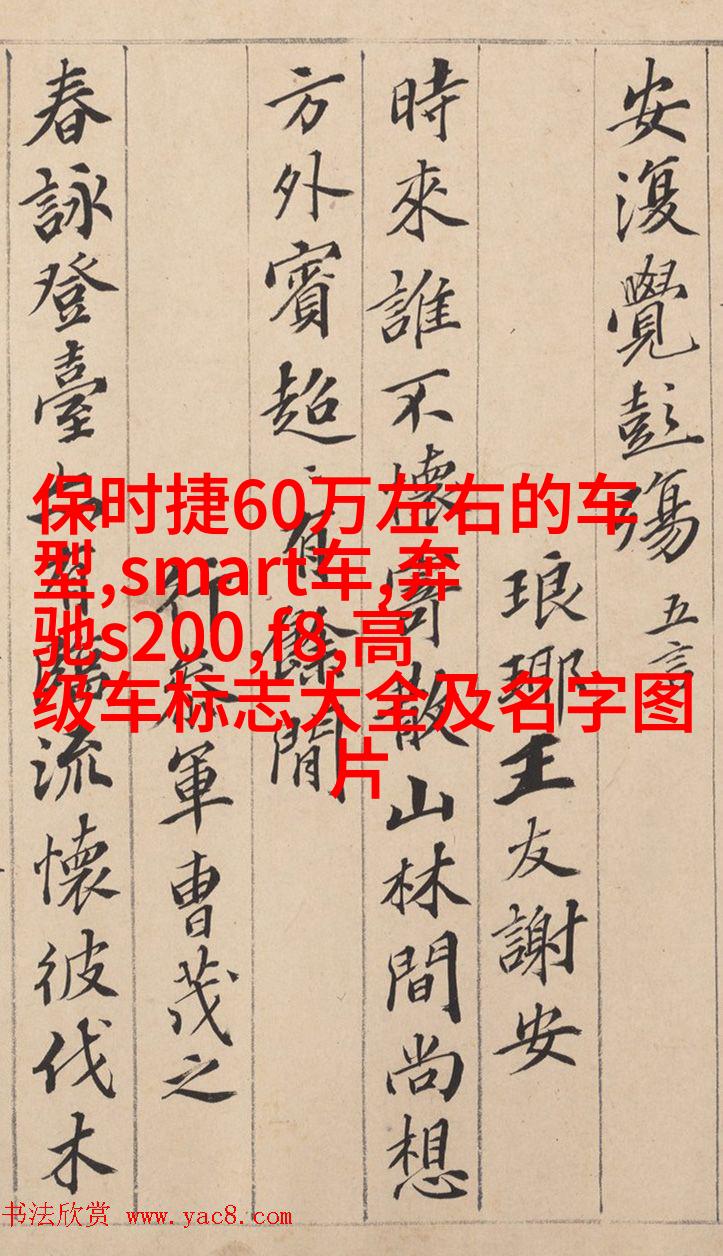 安復覺彭殤 五言
琅瑘王友謝安
時來誰不懷寄散山林間尚想
方外賓超〻有餘閒
行參軍曹茂之
春詠登臺亦有臨流懷彼伐木
保时捷60万左右的车
型,smart车,奔
驰s200,f8,高
级车标志大全及名字图
片
书法欣赏 www.yac8.com